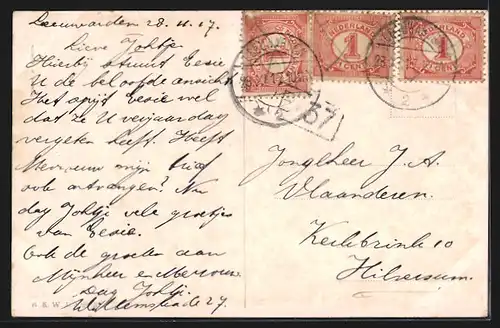 Leeuwarden 28.11.17.
Lieve Joktje
Hierbij stuurt Eesie
U de beloofde ansicht
Het spijt Eesie wel
dat ze U verjaardag
vergeten heeft. Heeft
Mevrouw mijn brief
ook ontvangen? Nu
dag Joktje vele groetjes
van Eesie.
Ook de groeten aan
Mijnheer en Mevrouw.
Dag Joktje.
Willemskade 27.
NEDERLAND
1
CENT
NEDERLAND
1
CENT
37
Jonglheer J. A.
Vlaanderen.
Kerkbrink 10
Hilversum.